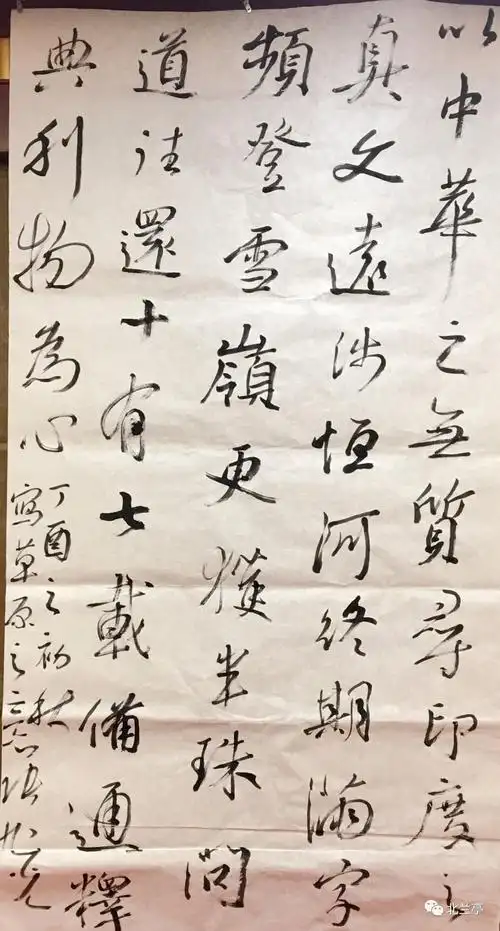 以中華之無質尋印度之
真文遠涉恒河終期滿字
頻登雪嶺更獲半珠問
道往還十有七載備通釋
典利物為心
丁酉之初秋
寫草原之張旭光
北兰亭